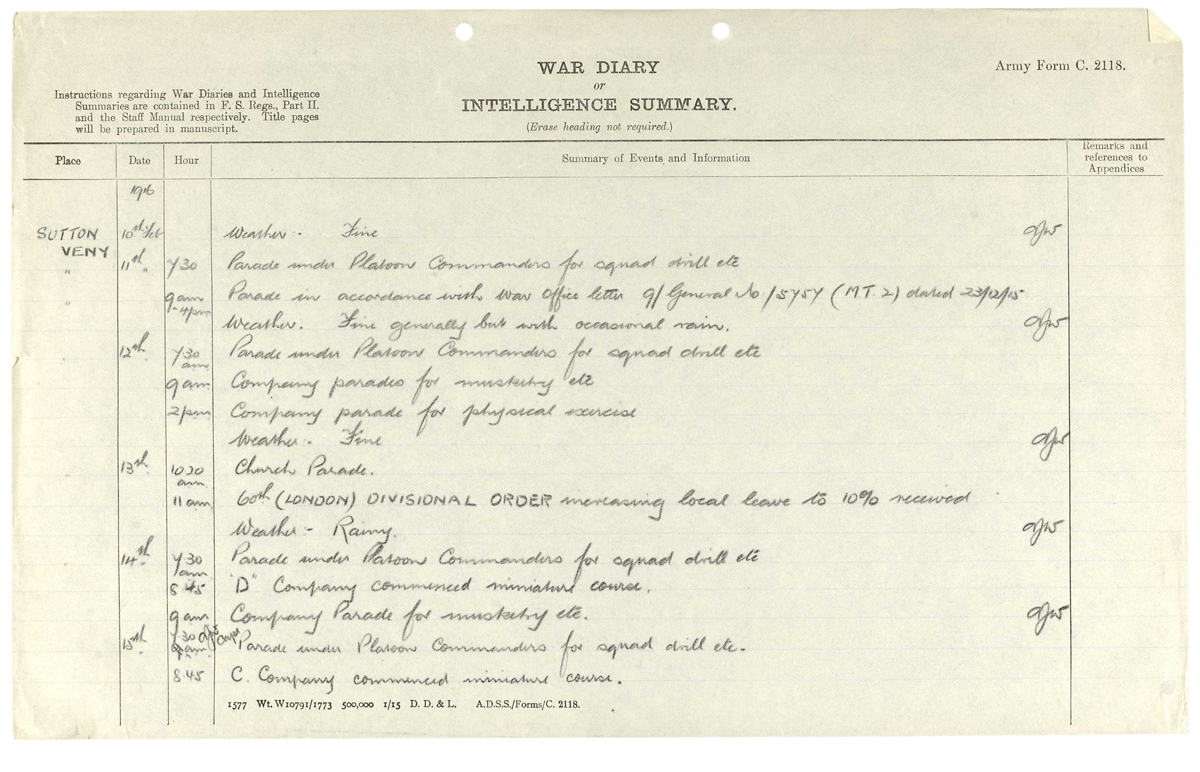 WAR DIARY
or
INTELLIGENCE SUMMARY.
(Erase heading not required.)
Army Form C. 2118.
Instructions regarding War Diaries and Intelligence
Summaries are contained in F. S. Regs., Part II.
and the Staff Manual respectively. Title pages
will be prepared in manuscript.
Place Date Hour Summary of Events and Information Remarks and references to Appendices
1916
SUTTON VENY 10th Feb Weather - Fine
" 11th " 7 30 Parade under Platoon Commanders for squad drill etc
" 9 am - 4 pm Parade in accordance with War Office letter 9/General No /5757 (M.T. 2) dated 23/12/15
Weather. Fine generally but with occasional rain.
12th 7 30 am Parade under Platoon Commanders for squad drill etc
9 am Company parades for musketry etc
2 pm Company parade for physical exercise
Weather - Fine
" 13th 10 30 am Church Parade.
11 am 60th (LONDON) DIVISIONAL ORDER increasing local leave to 10% received
Weather - Rainy.
14th 7 30 am Parade under Platoon Commanders for squad drill etc
8 45 "D" Company commenced miniature course.
9 am Company Parade for musketry etc.
15th 7 30 am Parade under Platoon Commanders for squad drill etc.
8.45 C. Company commenced miniature course.
1577 Wt. W10791/1773 500,000 1/15 D. D. & L. A.D.S.S./Forms/C. 2118.